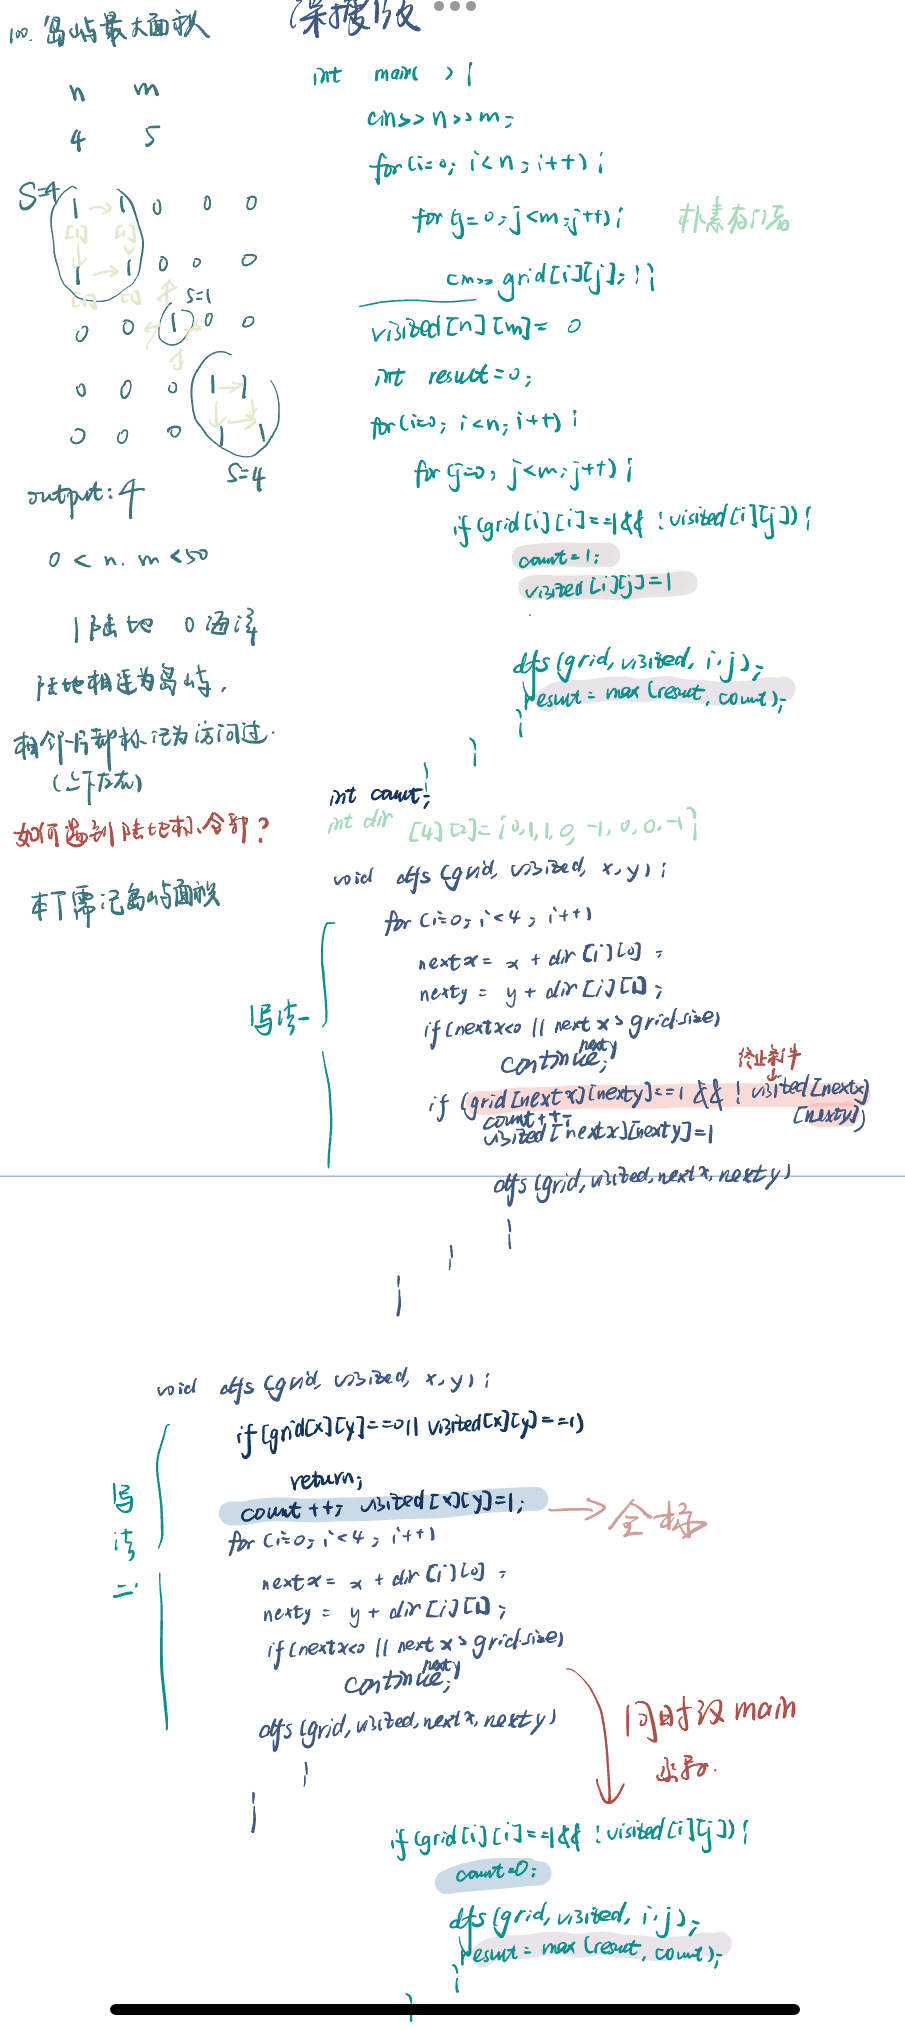 100. 岛屿最大面积
深搜版
n m
4 5
S=4
1 1 0 0 0
1 1 0 0 0
S=1
0 0 1 0 0
0 0 0 1 1
0 0 0 1 1
S=4
output: 4
0 < n. m < 50
1陆地 0海洋
陆地相连为岛屿,
相邻后都标记为访问过.
(上下左右)
如何遇到陆地相邻?
本下需记岛屿面积
int main( ) {
cin>> n>>m;
for(i=0; i<n; i++) {
for(j=0; j<m; j++) {
cin>> grid[i][j]; } }
visited[n][m]= 0
int result=0;
for(i=0; i<n; i++) {
for(j=0; j<m; j++) {
if(grid[i][i]==1&& !visited[i][j]) {
count=1;
visited[i][j]=1
dfs(grid, visited, i.j);
result = max(result, count);
}
}
}
int count;
int dir [4][2]={0,1,1,0,-1,0,0,-1}
void dfs(grid, visited, x, y) {
写法一
for(i=0; i<4; i++)
nextx= x + dir[i][0];
nexty = y + dir[i][1];
if(nextx<0 || nextx>grid.size)
nexty
continue;
终止条件
if(grid[nextx][nexty]==1 && !visited[nextx]
[nexty])
count++;
visited[nextx][nexty]=1
dfs(grid, visited, nextx, nexty)
}
}
}
void dfs(grid, visited, x, y) {
写法二
if(grid[x][y]==0|| visited[x][y]==1)
return;
count++; visited[x][y]=1; → 全标
for(i=0; i<4; i++)
nextx= x + dir[i][0];
nexty = y + dir[i][1];
if(nextx<0 || nextx>grid.size)
nexty
continue;
dfs(grid, visited, nextx, nexty)
}
}
同时改main
if(grid[i][i]==1&& !visited[i][j]) {
count=0;
dfs(grid, visited, i.j);
result = max(result, count);
}
}